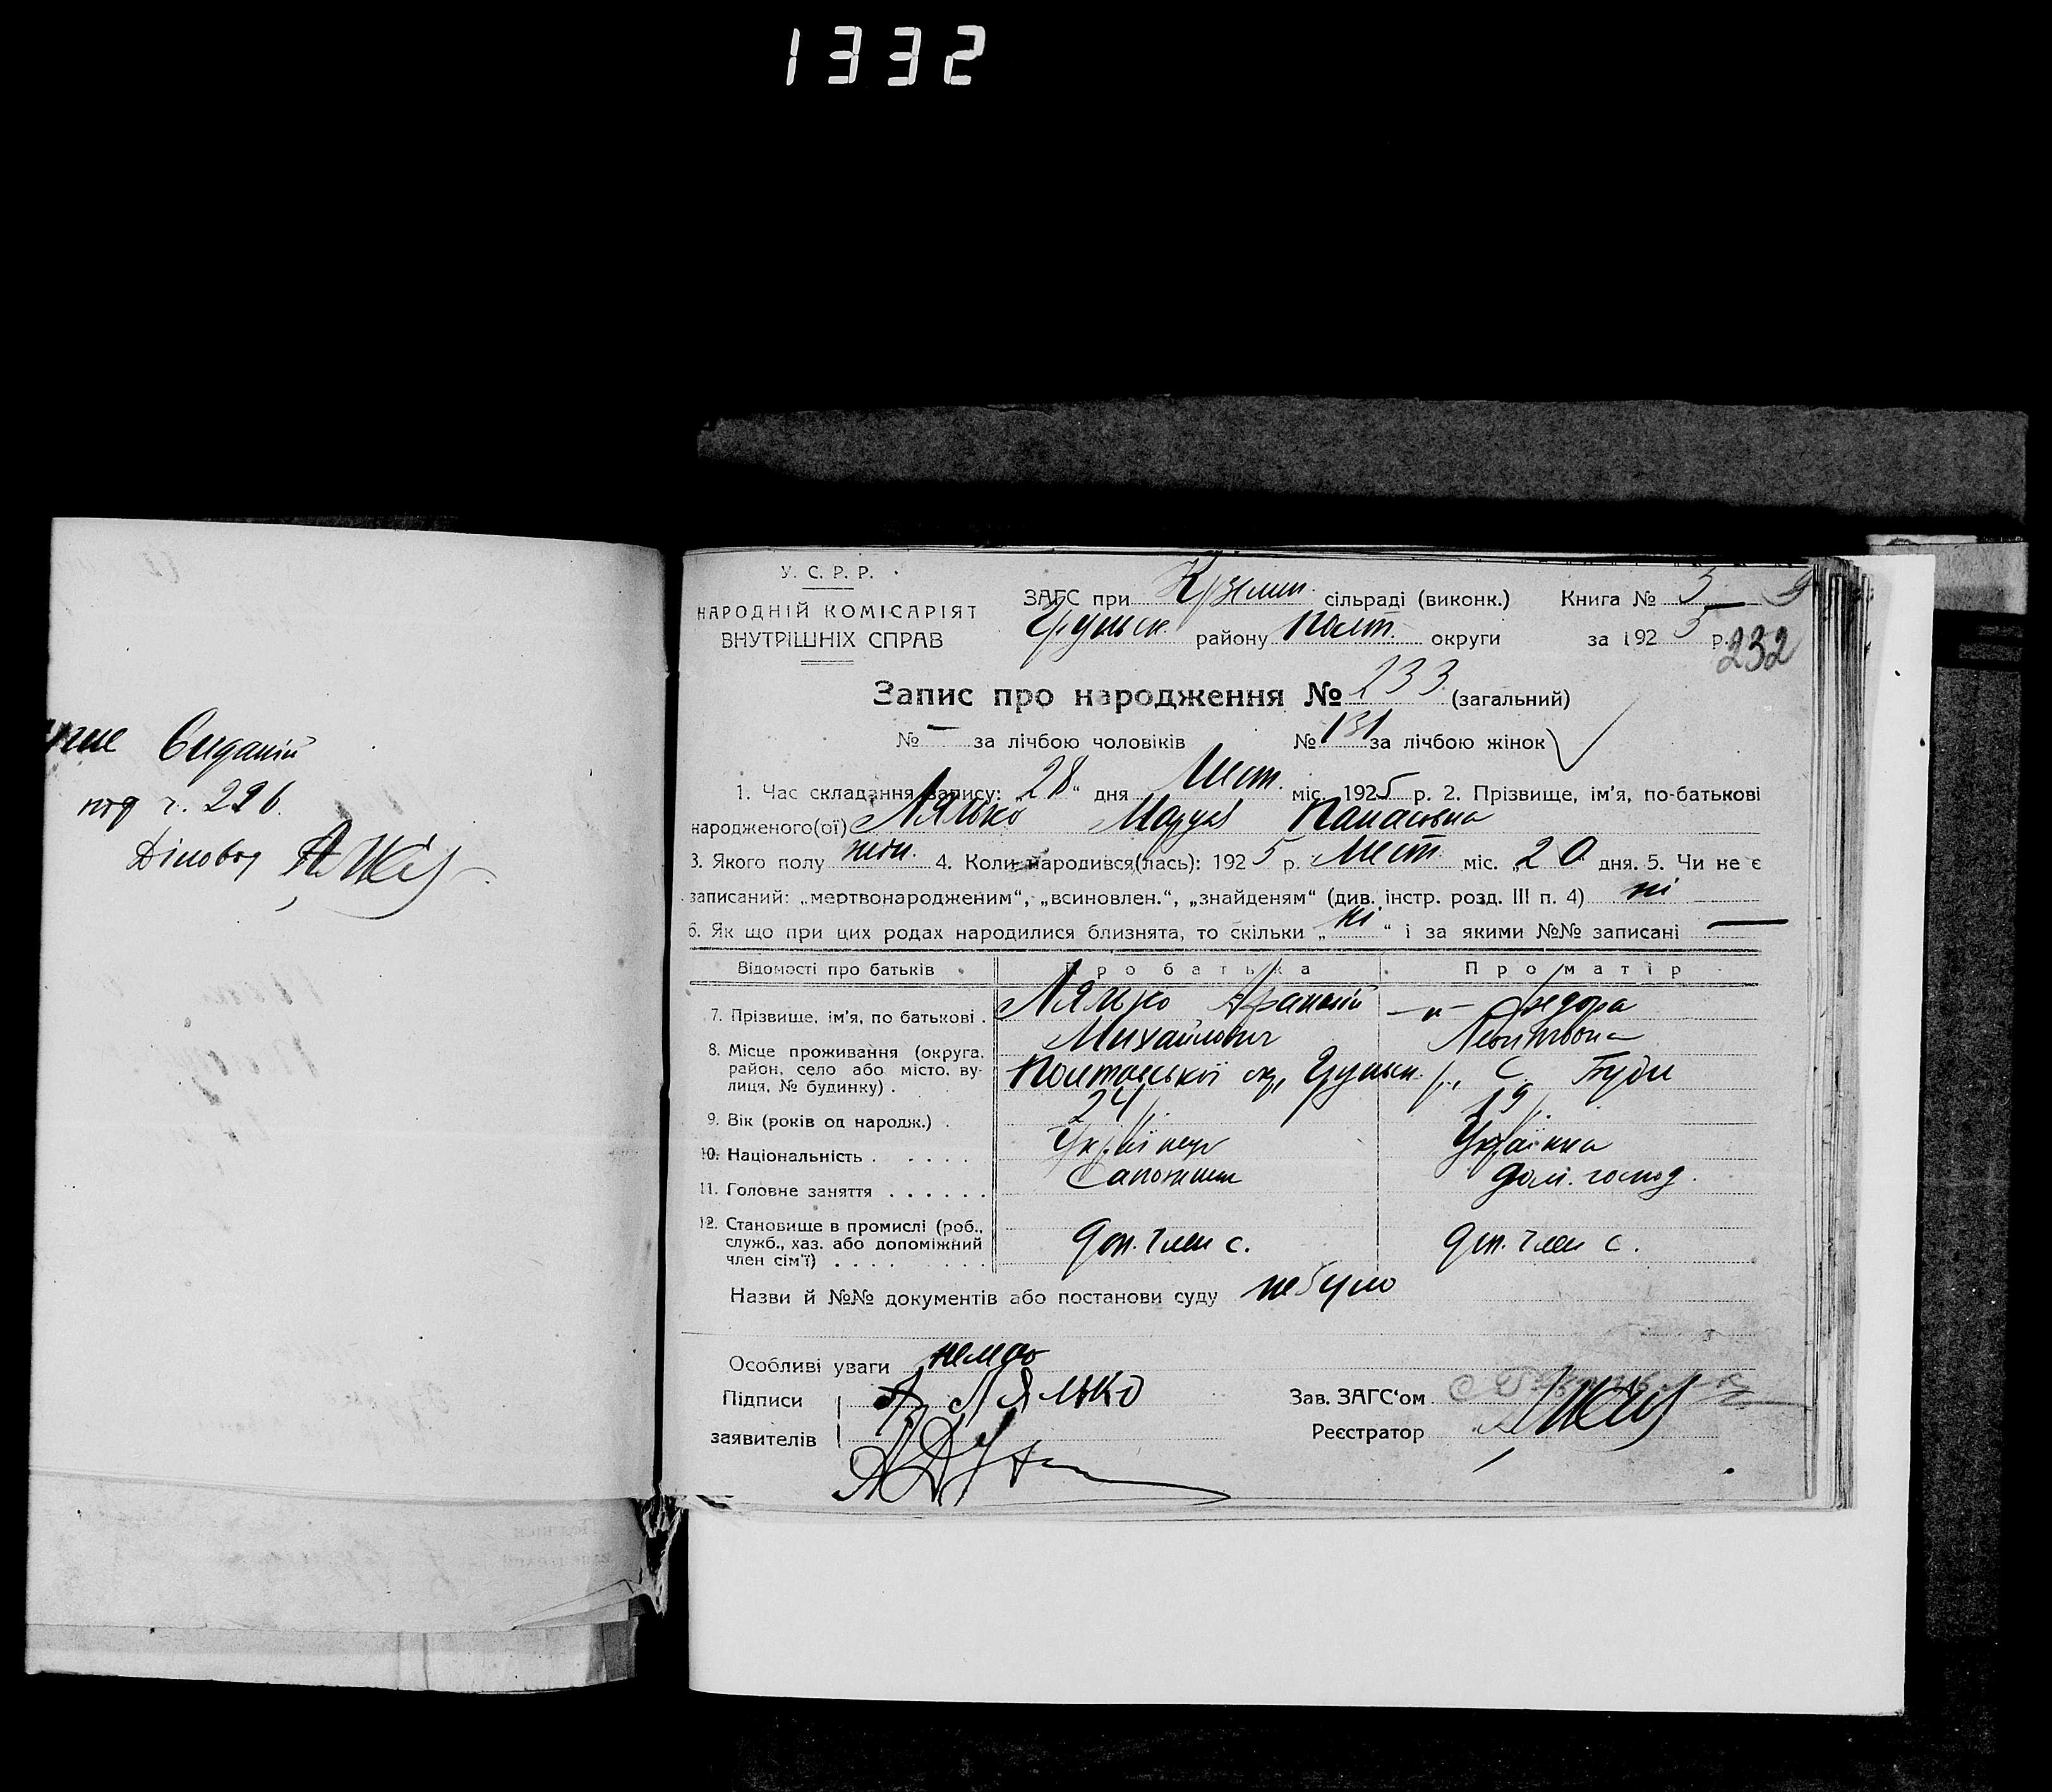 1332
Виданій
под г. 226.
Діловод
У. С. Р. Р.
НАРОДНІЙ КОМІСАРІЯТ
ВНУТРІШНІХ СПРАВ
ЗАГС при сільраді (виконк.) Книга № 5
Груньск. району Полт. округи за 1925 р.
232
Запис про народження № 233 (загальний)
№ - за лічбою чоловіків № 131 за лічбою жінок
1. Час складання запису: „28“ дня Лист. міс. 1925 р. 2. Прізвище, ім'я, по-батькові
народженого(ої) Лялько Марія Панасівна
3. Якого полу жін. 4. Коли народився(лась): 1925 р. Лист. міс. „20 дня. 5. Чи не є
записаний: „мертвонародженим“, „всиновлен.“, „знайденям“ (див. інстр. розд. III п. 4) ні
6. Як що при цих родах народилися близнята, то скільки „ні“ і за якими №№ записані —
Відомості про батьків Про батька Про матір
7. Прізвище, ім'я, по батькові . Лялько Афанасій Михайлович -„- Федора Леонтівона
8. Місце проживання (округа, район, село або місто, вулиця, № будинку) . Полтавської ок, Груньск. р., С. Буди
9. Вік (років од народж.) . 24 р. 19 р.
10. Національність . . . . . Українець Українка
11. Головне заняття . . . . . . Сапожник дом. господ.
12. Становище в промислі (роб., служб., хаз. або допоміжний член сім'ї) . . . . доп. член с. доп. член с.
Назви й №№ документів або постанови суду небуло
Особливі уваги немає
Підписи А. Лялько Зав. ЗАГС'ом
заявителів Реєстратор